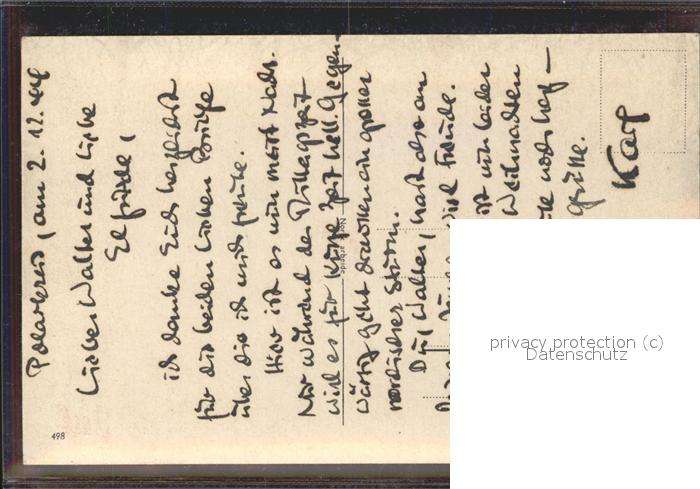 Polarkreis, am 2.12.44
Lieber Walter und liebe
Elfriede!
ich danke Euch herzlichst
für die beiden lieben Briefe
über die ich mich freute.
Hier ist es nun meist Nacht.
Nur während der Mittagszeit
wird es für kurze Zeit hell. Gegen-
wärtig geht draußen ein großer
nordischer Sturm.
Du, Walter, hast also an
viel Freude.
ist nun leider
Weihnachten
noch herz-
Grüße.
Karl
498
privacy protection (c)
Datenschutz